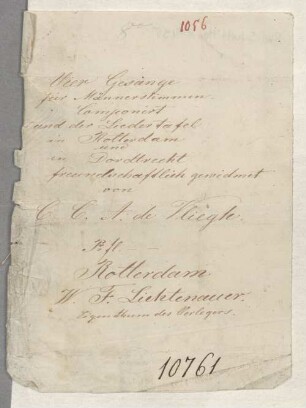 1056
Vier Gesänge
für Männerstimmen
Componirt
und der Liedertafel
in Rotterdam
und
in Dordtrecht
freundschaftlich gewidmet
von
C. C. A. de Vliegh.
Rotterdam
W. F. Lichtenauer.
Eigenthum des Verlegers.
10761